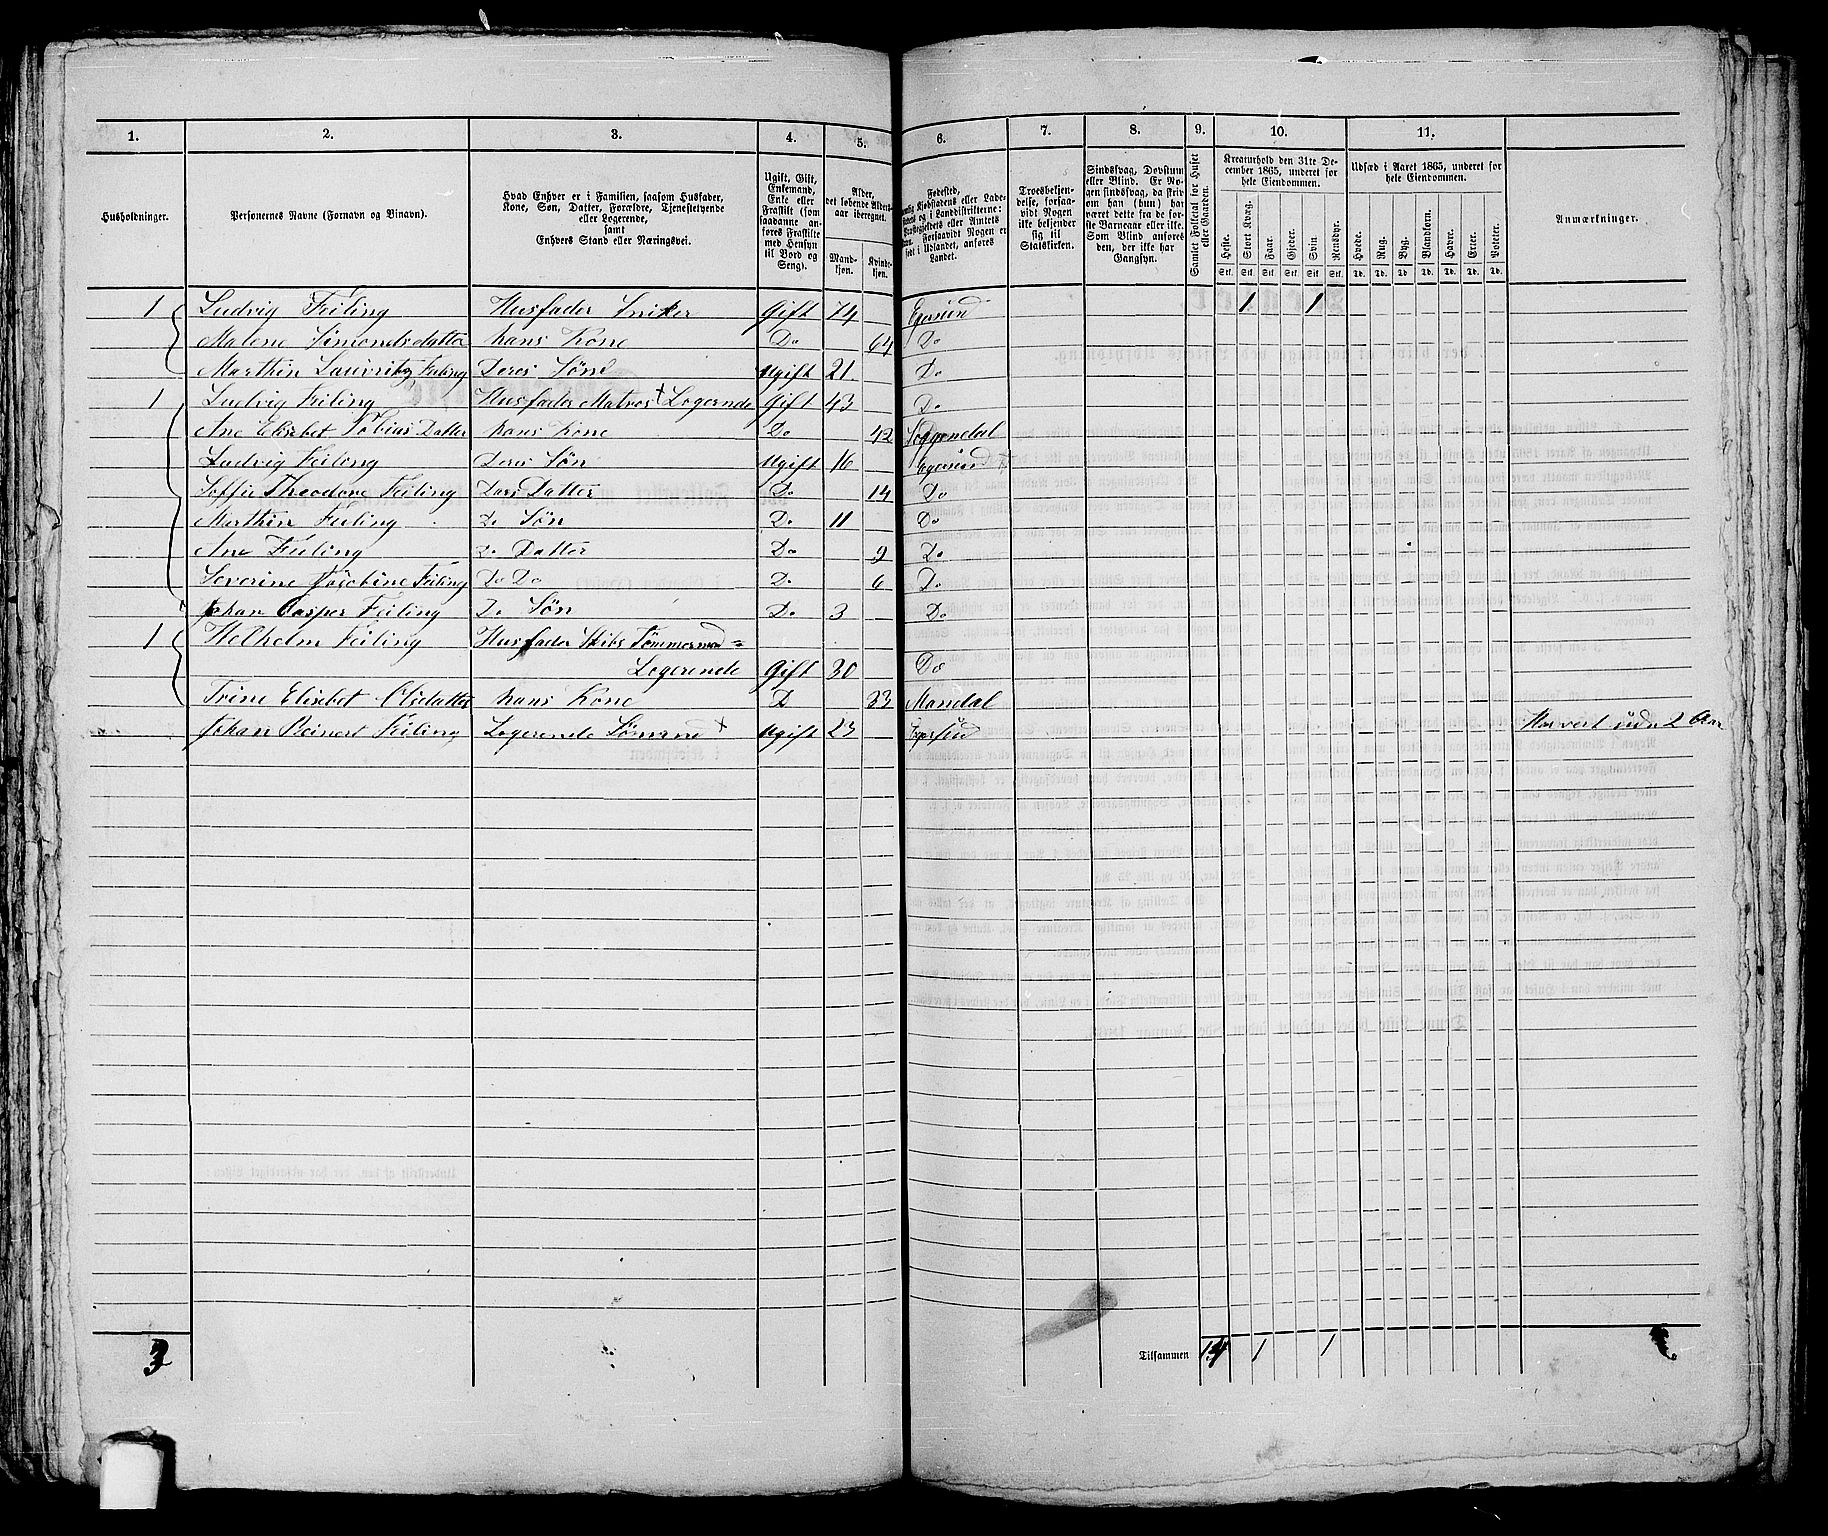 1. 2. 3. 4. 5. 6. 7. 8. 9. 10. 11.
Husholdninger.
Personernes Navne (Fornavn og Binavn).
Hvad Enhver er i Familien, saasom Husfader,
Kone, Søn, Datter, Forældre, Tjenestetyende
eller Logerende,
samt
Enhvers Stand eller Næringsvei.
Ugift, Gift,
Enkemand,
Enke eller
Fraskilt (som
saadanne an-
føres Fraskilte
med Hensyn
til Bord og
Seng).
Alder,
det løbende Alders-
aar iberegnet.
Mand-
kjøn.
Kvinde-
kjøn.
Fødested,
Kjøbstadens eller Lade-
og i Landdistrikterne:
Præstegjeldets eller Amtets
Forsaavidt Nogen er
født i Udlandet, anføres
Landet.
Troesbekjen-
delse, forsaa-
vidt Nogen
ikke bekjender
sig til
Statskirken.
Sindssvag, Døvstum
eller Blind. Er No-
gen sindssvag, da skriv
om han (hun) har
været dette fra de for-
ste Barneaar eller ikke.
Som Blind anføres
den, der ikke har
Gangsyn.
Samlet Folketal for Huset
eller Gaarden.
Kreaturhold den 31te De-
cember 1865, underet for
hele Eiendommen.
Heste. Stort Kvæg. Faar. Gjeder. Svin. Rensdyr.
Stk. Stk. Stk. Stk. Stk. Stk.
Udsæd i Aaret 1865, underet for
hele Eiendommen.
Hvede. Rug. Byg. Blandkorn. Havre. Erter. Poteter.
Td. Td. Td. Td. Td. Td. Td.
Anmærkninger.
1 Ludvig Feiling Husfader Sniker Gift 74 Egersund 1 1
Malene Simondsdatter hans Kone Do 64 Do
Marthin Lauvritz Feiling Deres Søn Ugift 21 Do
1 Ludvig Feiling Husfader Matros + Logernde Gift 43 Do
Ane Elisebet Tobias Datter hans Kone Do 42 Soggendal
Ludvig Feiling Deres Søn Ugift 16 Egersund
Soffie Theodore Feiling Dars Datter Do 14 Do
Marthin Feiling Do Søn Do 11 Do
Ane Feiling Do Datter Do 9 Do
Severine Jacobine Feiling Do Do Do 6 Do
Johan Casper Feiling Do Søn Do 3 Do
1 Welhelm Feiling Husfader Skibs Tømmermand =
Logerende Gift 30 Do
Trine Elisebet Olsdatter hans Kone D 33 Mandal
Johan Reinert Feiling Logerende Sømand + Ugift 23 Egersund Har vert ude 2 Aar
3 Tilsammen 1 1